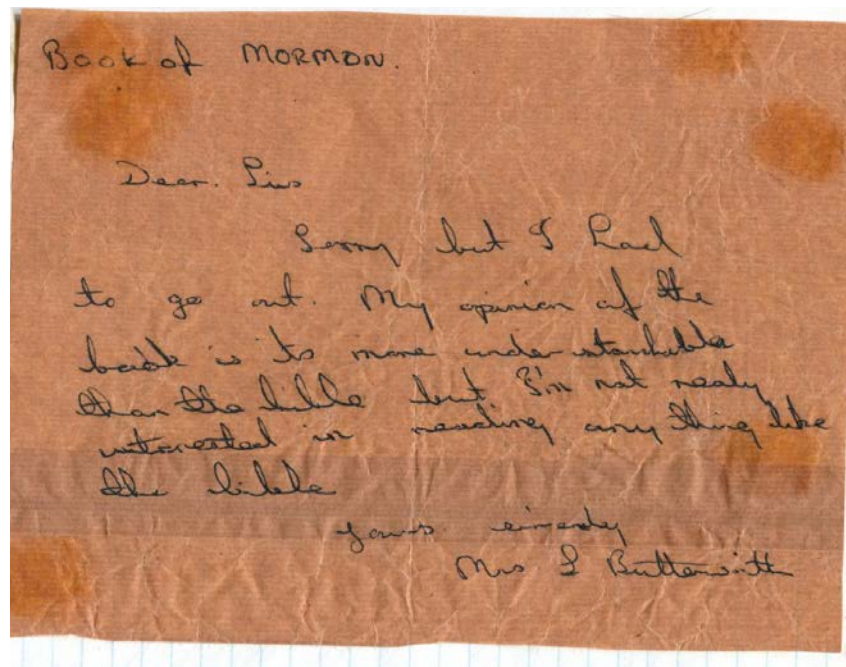 Book of MORMON.
Dear. Sirs
Sorry but I had
to go out. My opinion of the
book is its more understandable
than the bible but I'm not realy
interested in reading any thing like
the bible
yours sincerely
Mrs L Butterworth